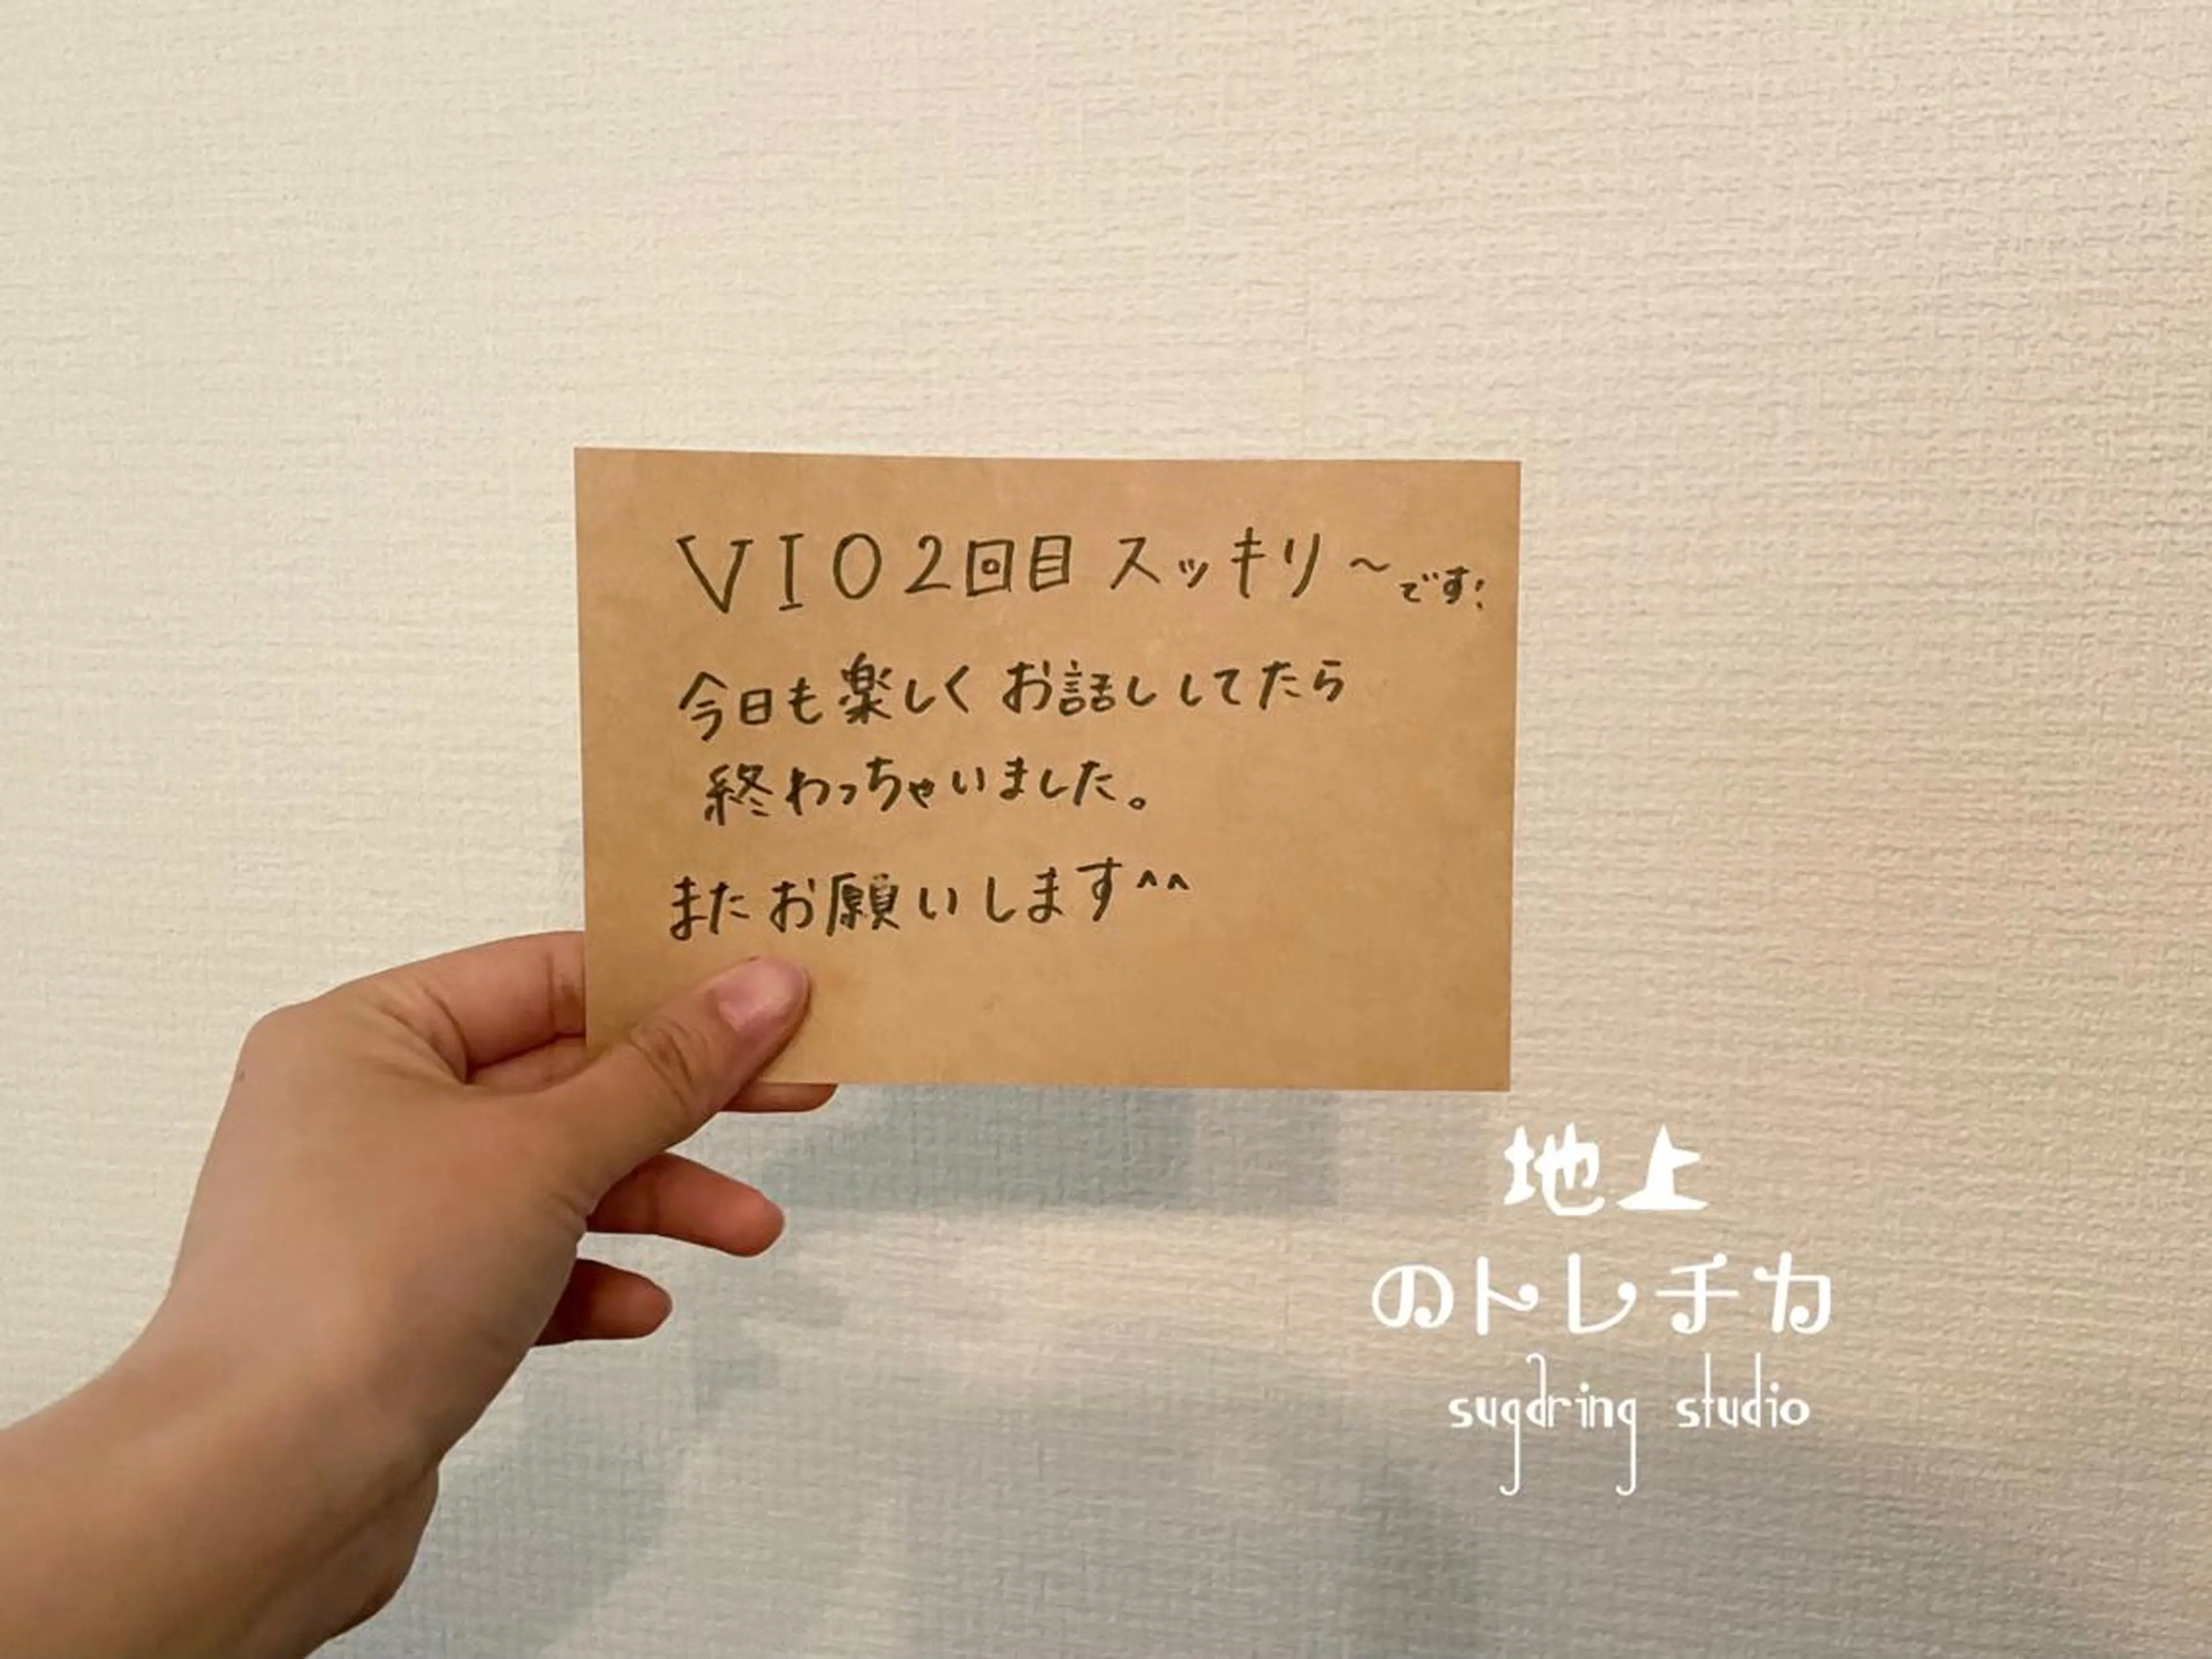 VIO2回目 スッキリ～です!
今日も楽しくお話ししてたら
終わっちゃいました。
またお願いします^^
地上
のトレチカ
sugaring studio